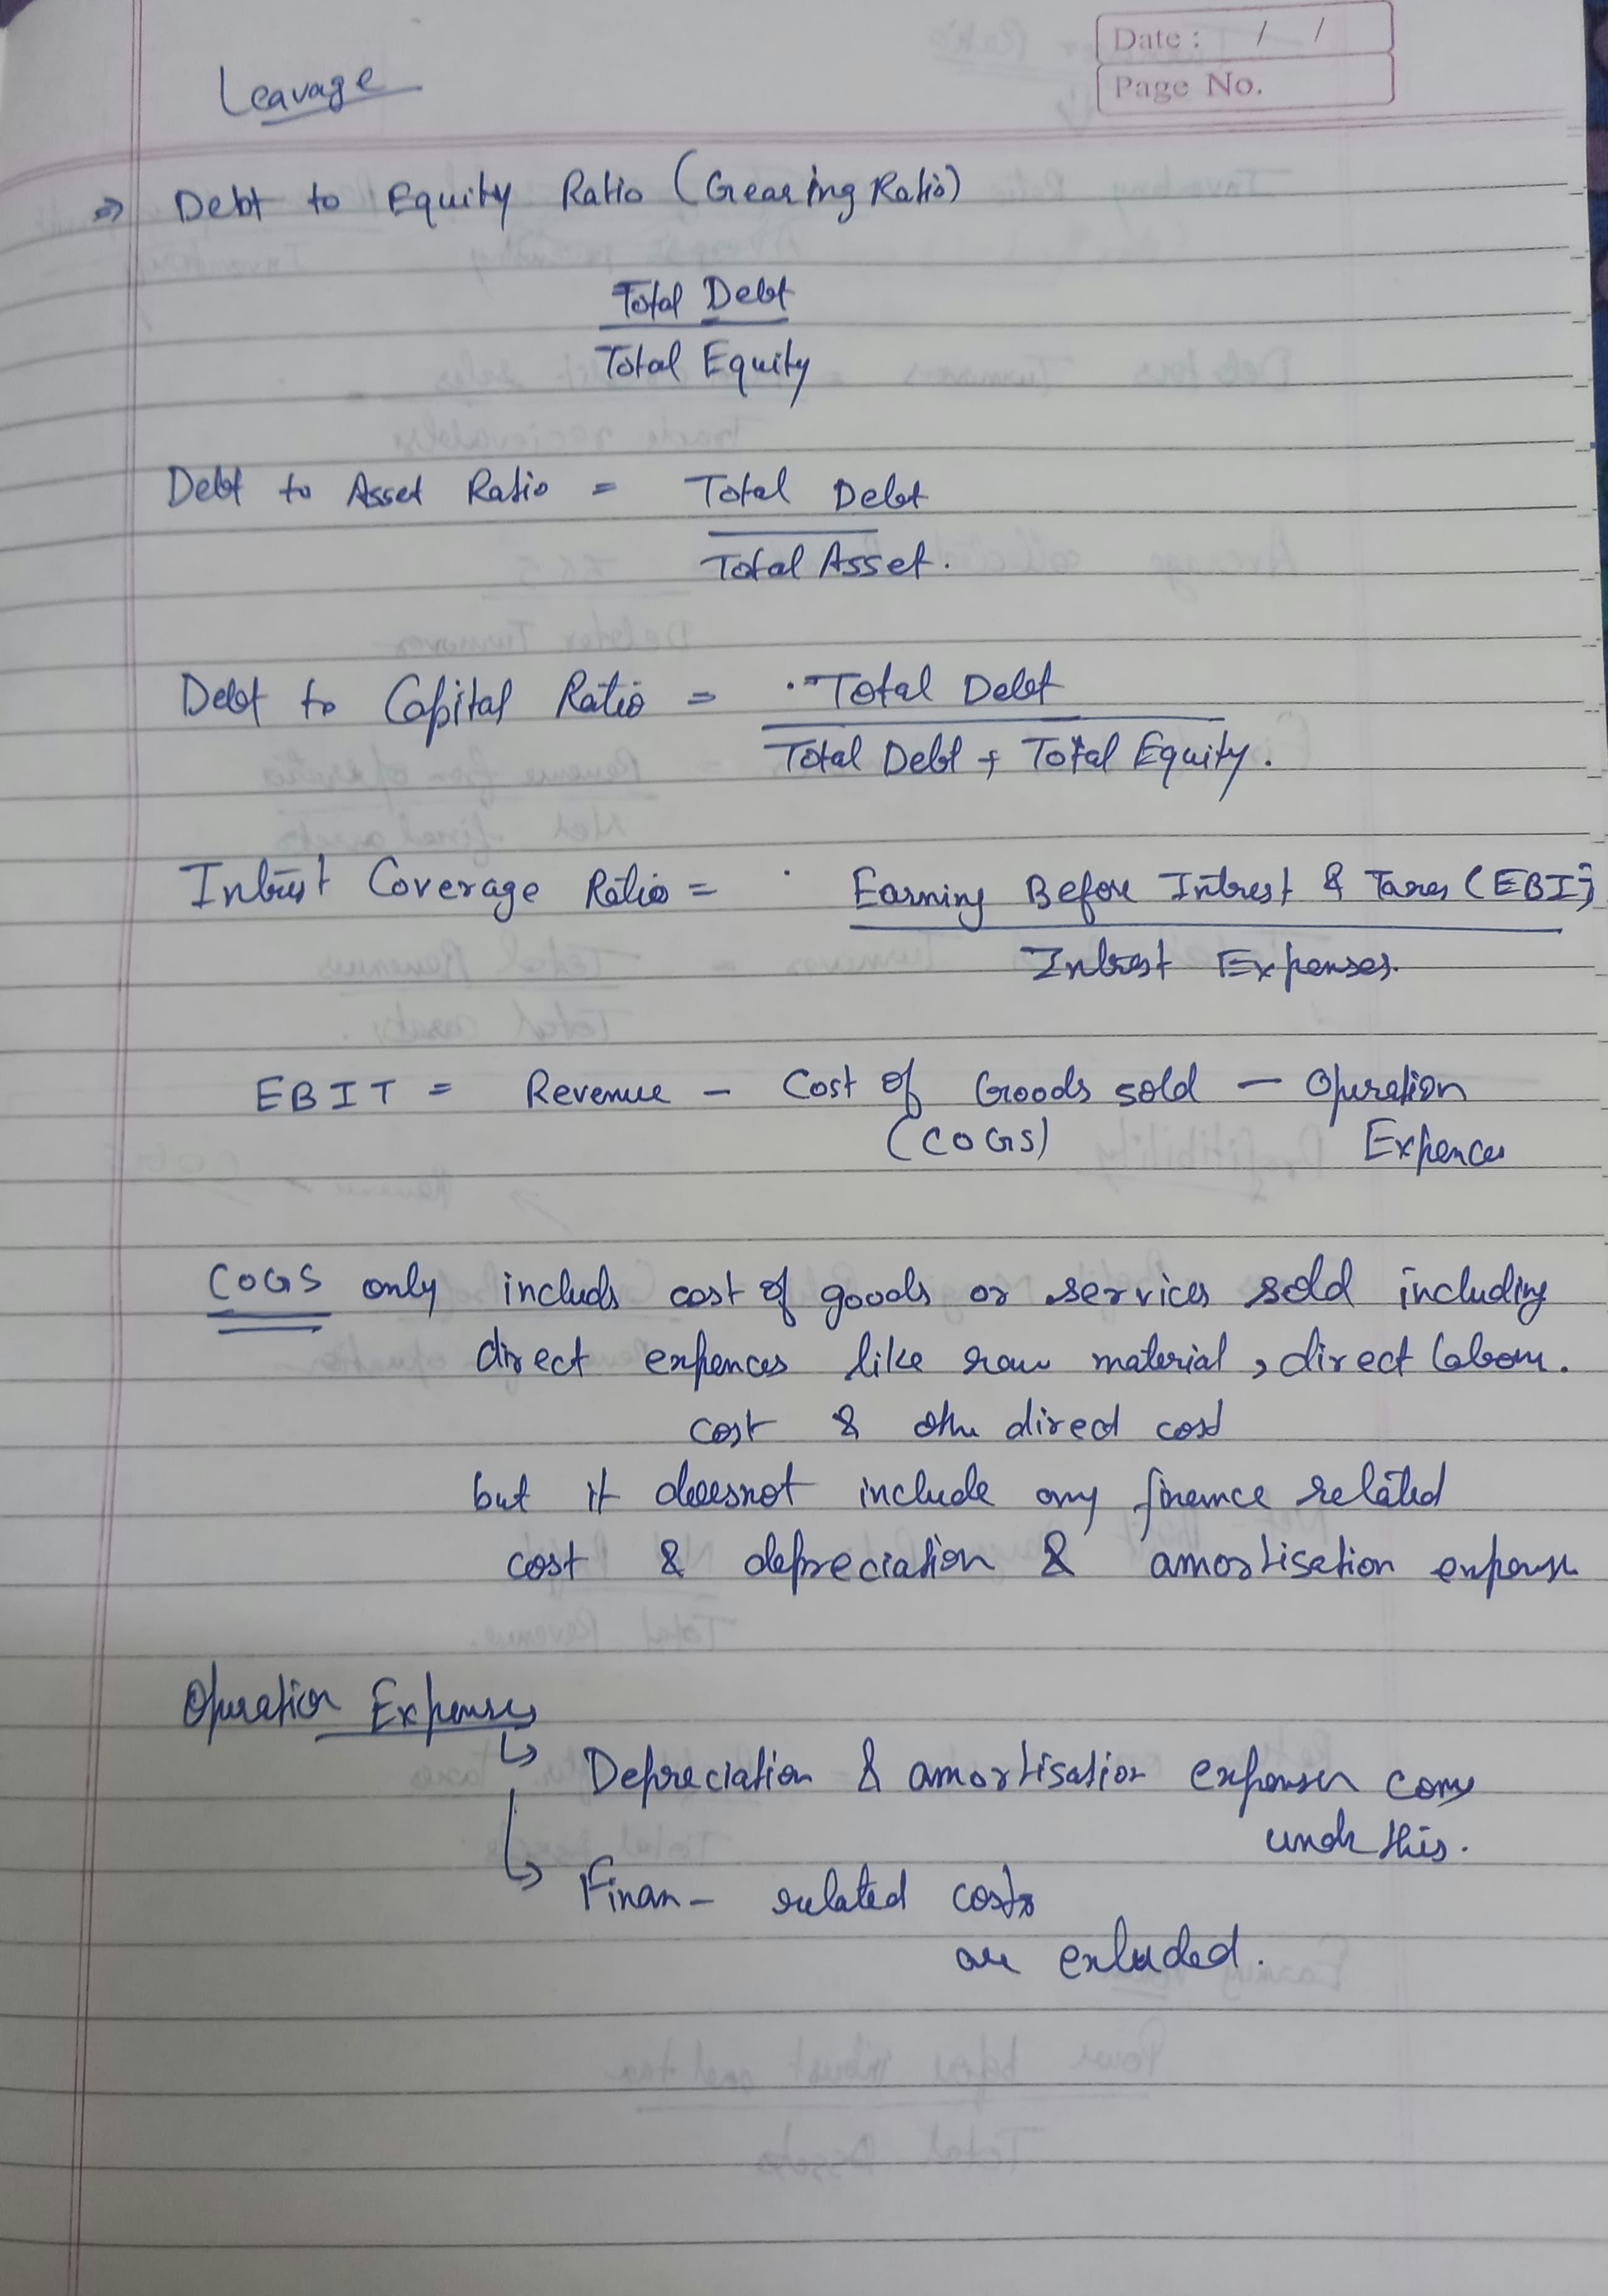 Date : / /
Page No.
Leavage
⇒ Debt to Equity Ratio (Gearing Ratio)
Total Debt
Total Equity
Debt to Asset Ratio = Total Debt
Total Asset.
Debt to Capital Ratio = Total Debt
Total Debt + Total Equity.
Intrest Coverage Ratio = Earning Before Intrest & Taxes (EBIT)
Intrest Expenses.
EBIT = Revenue - Cost of Goods sold - Operation
(COGS) Expences
COGS only includs cost of goods or services sold including
direct expences like raw material, direct labour.
cost & othe direct cost
but it doesnot include any finance related
cost & depreciation & amortisation expense
Operation Expenses
↳ Depreciation & amortisation expenses comes
unde this.
↳ Finan- related costs
are exluded.